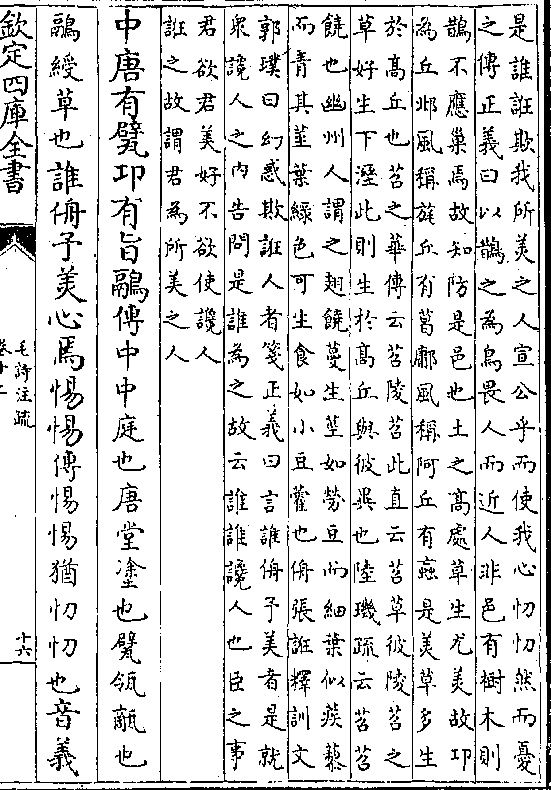 是誰誑欺我所美之人宣公乎而使我心忉忉然而憂
之傳正義曰以鵲之為鳥畏人而近人非邑有樹木則
鵲不應巢焉故知防是邑也土之高處草生尤美故卭
為丘邶風稱旄丘有葛鄘風稱阿丘有蝱是美草多生
於髙丘也苕之華傳云苕陵苕此直云苕草彼陵苕之
草好生下溼此則生於髙丘與彼異也陸璣疏云苕苕
饒也幽州人謂之翹饒蔓生莖如勞豆而細葉似蒺藜
而青其莖葉綠色可生食如小豆藿也侜張誑釋訓文
郭璞曰幻惑欺誑人者箋正義曰言誰侜予美者是就
衆讒人之內告問是誰為之故云誰誰讒人也臣之事
君欲君美好不欲使讒人
誑之故謂君為所美之人
中唐有甓卭有旨鷊傳中中庭也唐堂塗也甓瓴甋也
鷊綬草也誰侜予美心焉惕惕傳惕惕猶忉忉也音義
欽定四庫全書
毛詩注疏
卷十二
十六